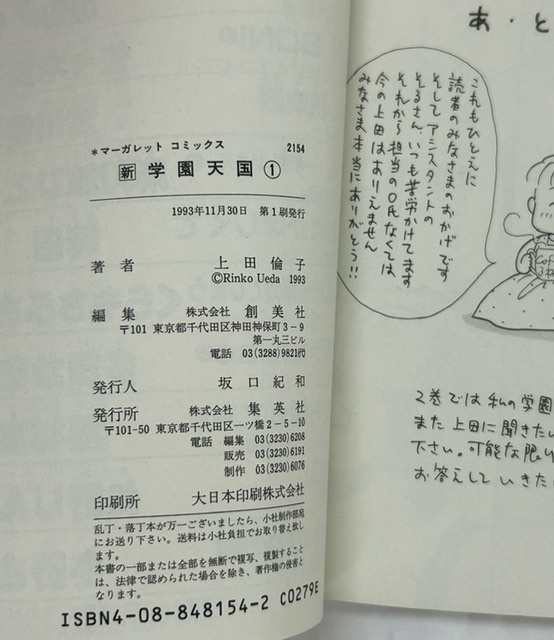 ＊マーガレット コミックス 2154
新 学園天国①
1993年11月30日 第1刷発行
著者 上田倫子
©Rinko Ueda 1993
編集 株式会社 創美社
〒101 東京都千代田区神田神保町3－9
第一丸三ビル
電話 03(3288)9821代
発行人 坂口紀和
発行所 株式会社 集英社
〒101-50 東京都千代田区一ツ橋2－5－10
電話 編集 03(3230)6208
販売 03(3230)6191
制作 03(3230)6076
印刷所 大日本印刷株式会社
乱丁・落丁本が万一ございましたら、小社制作部宛
にお送り下さい。送料は小社負担でお取り替え致し
ます。
本書の一部または全部を無断で複写、複製すること
は、法律で認められた場合を除き、著作権の侵害と
なります。
ISBN4-08-848154-2 C0279E
あ・と
これもひとえに
読者のみなさまのおかげです
そしてアシスタントの
そるさん、いつも苦労かけてます
それから担当のO氏なくては、
今の上田はありえません
みなさま本当にありがとう!!
Cof
2巻では私の学園
また上田に聞きたい
下さい。可能な限り
お答えしていきた